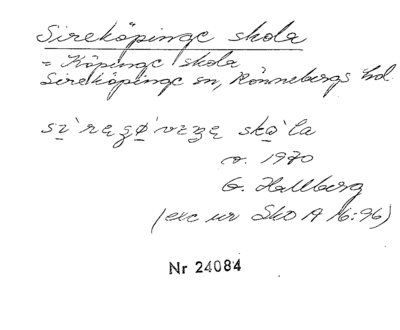 Sireköpinge skola
= Köpinge skola
Sireköpinge sn, Rönnebergs hd.
skå`la
o. 1970
G. Hallberg
(exc ur SkO A 16:96)
Nr 24084